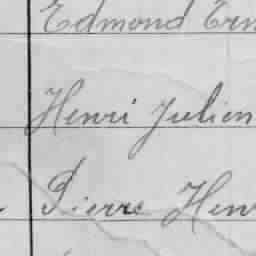 Edmond Ern
Henri Julien
Pierre Hen